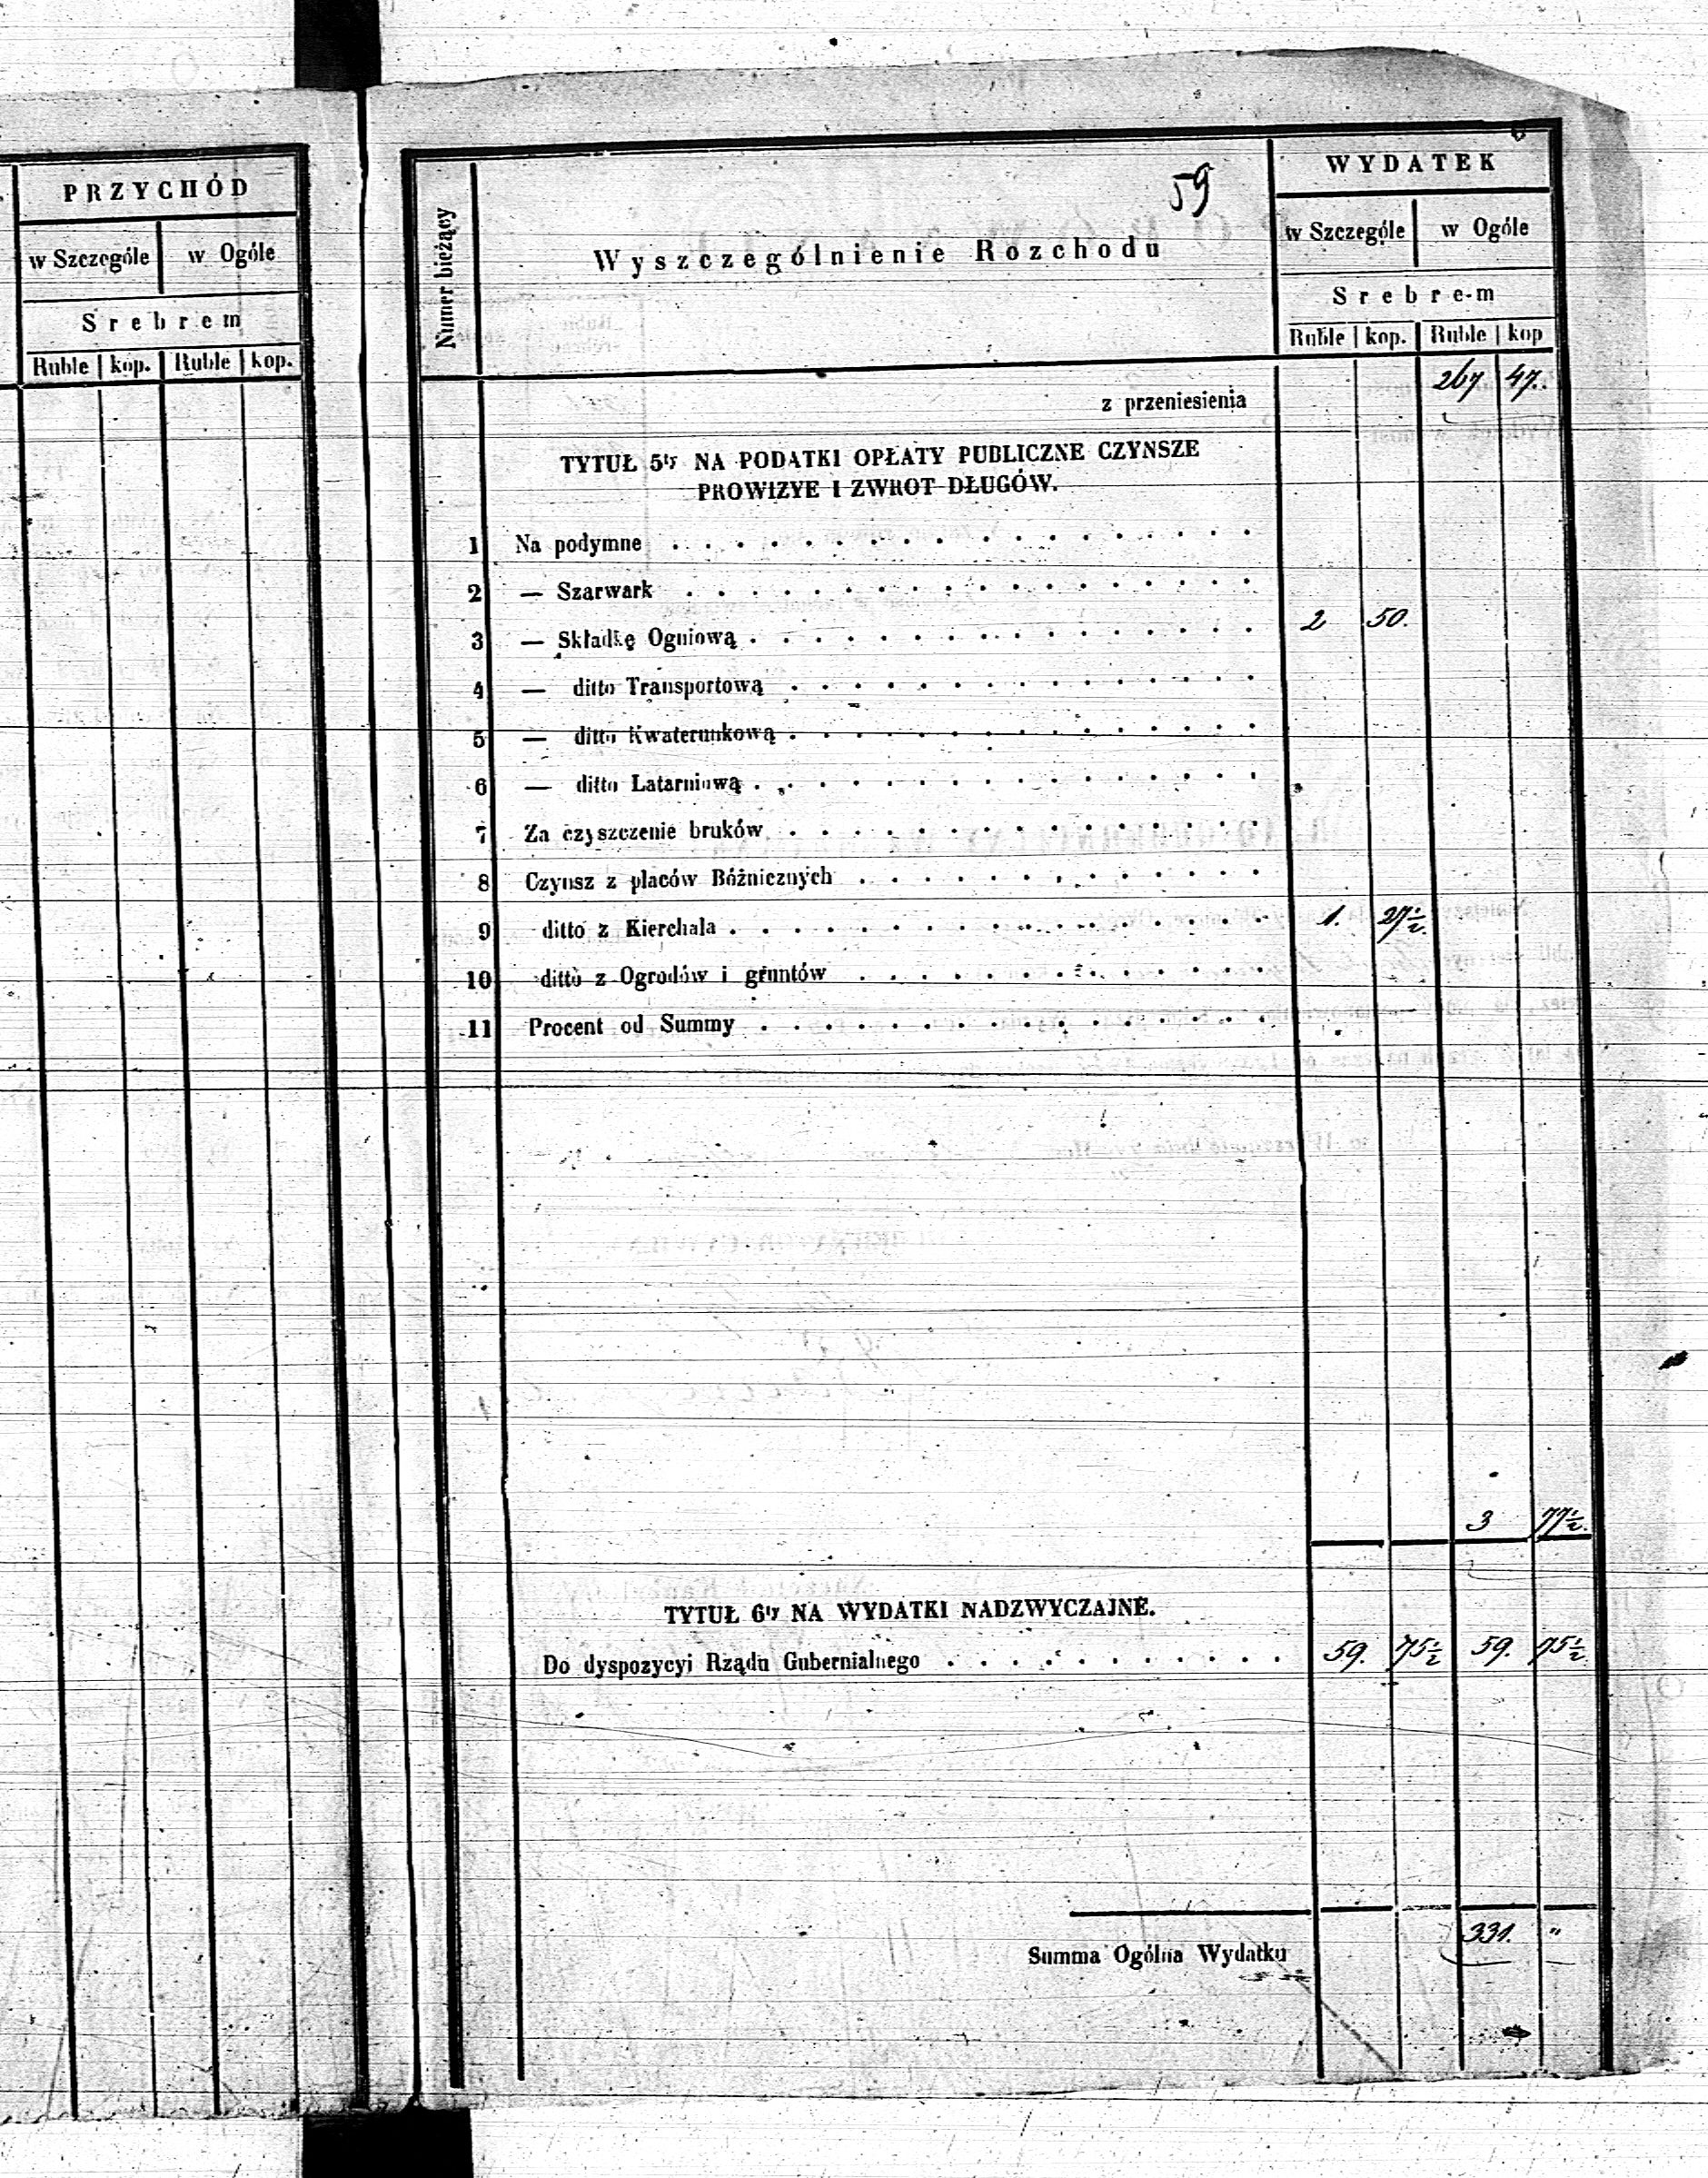 PRZYCHÓD
w Szczególe w Ogóle
Srebrem
Ruble kop. Ruble kop.
59
Numer bieżący
Wyszczególnienie Rozchodu
WYDATEK
w Szczególe w Ogóle
Srebrem
Ruble kop. Ruble kop
z przeniesienia 267 47.
TYTUŁ 5ty NA PODATKI OPŁATY PUBLICZNE CZYNSZE
PROWIZYE I ZWROT DŁUGÓW.
1 Na podymne
2 — Szarwark
3 — Składkę Ogniową 2 50.
4 — ditto Transportową
5 — ditto Kwaterunkową
6 — ditto Latarniową
7 Za czyszczenie bruków
8 Czynsz z placów Bóżnicznych
9 ditto z Kierchala 1. 27½
10 ditto z Ogrodów i gruntów
11 Procent od Summy
3 77½
TYTUŁ 6ty NA WYDATKI NADZWYCZAJNE.
Do dyspozycyi Rządu Gubernialnego 59. 75½ 59. 75½
Summa Ogólna Wydatku 331. "